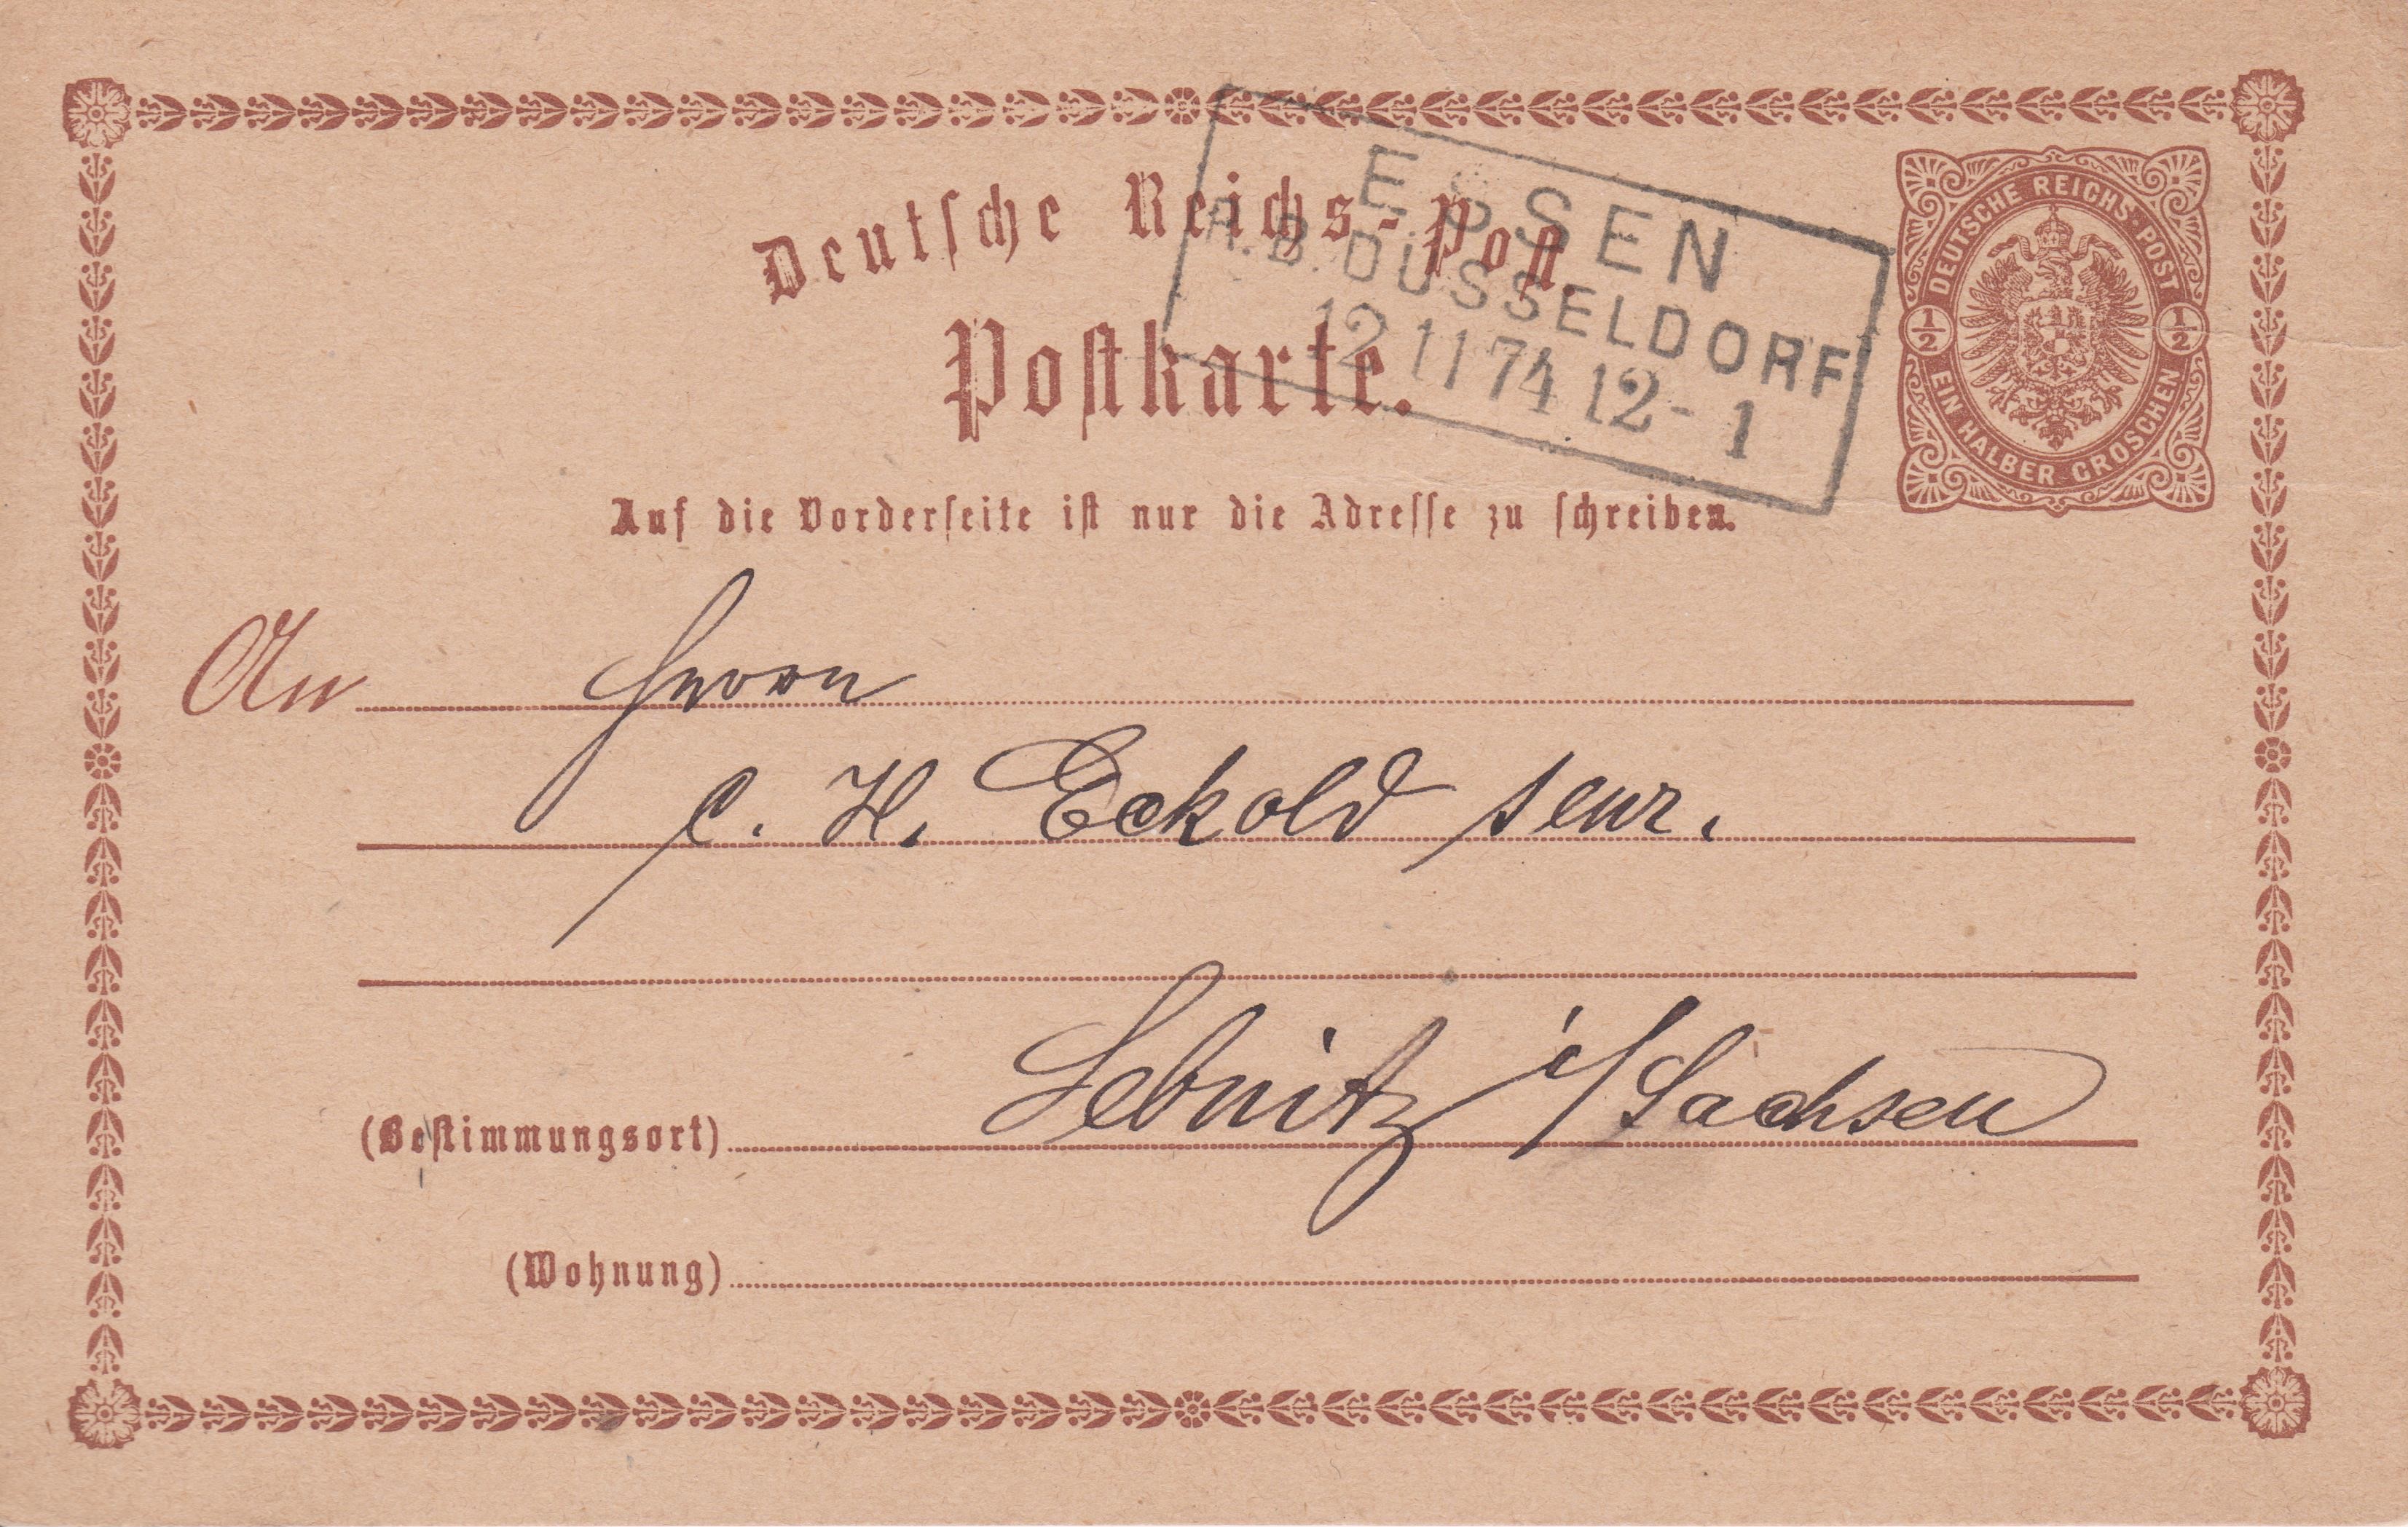 Deutsche Reichs-Post.
Postkarte.
ESSEN
R.B. DÜSSELDORF
12 11 74 12-1
DEUTSCHE REICHS-POST
1/2 1/2
EIN HALBER GROSCHEN
Auf die Vorderseite ist nur die Adresse zu schreiben.
An Herrn
C. H. Eckold senr.
(Bestimmungsort) Sebnitz i/Sachsen
(Wohnung)